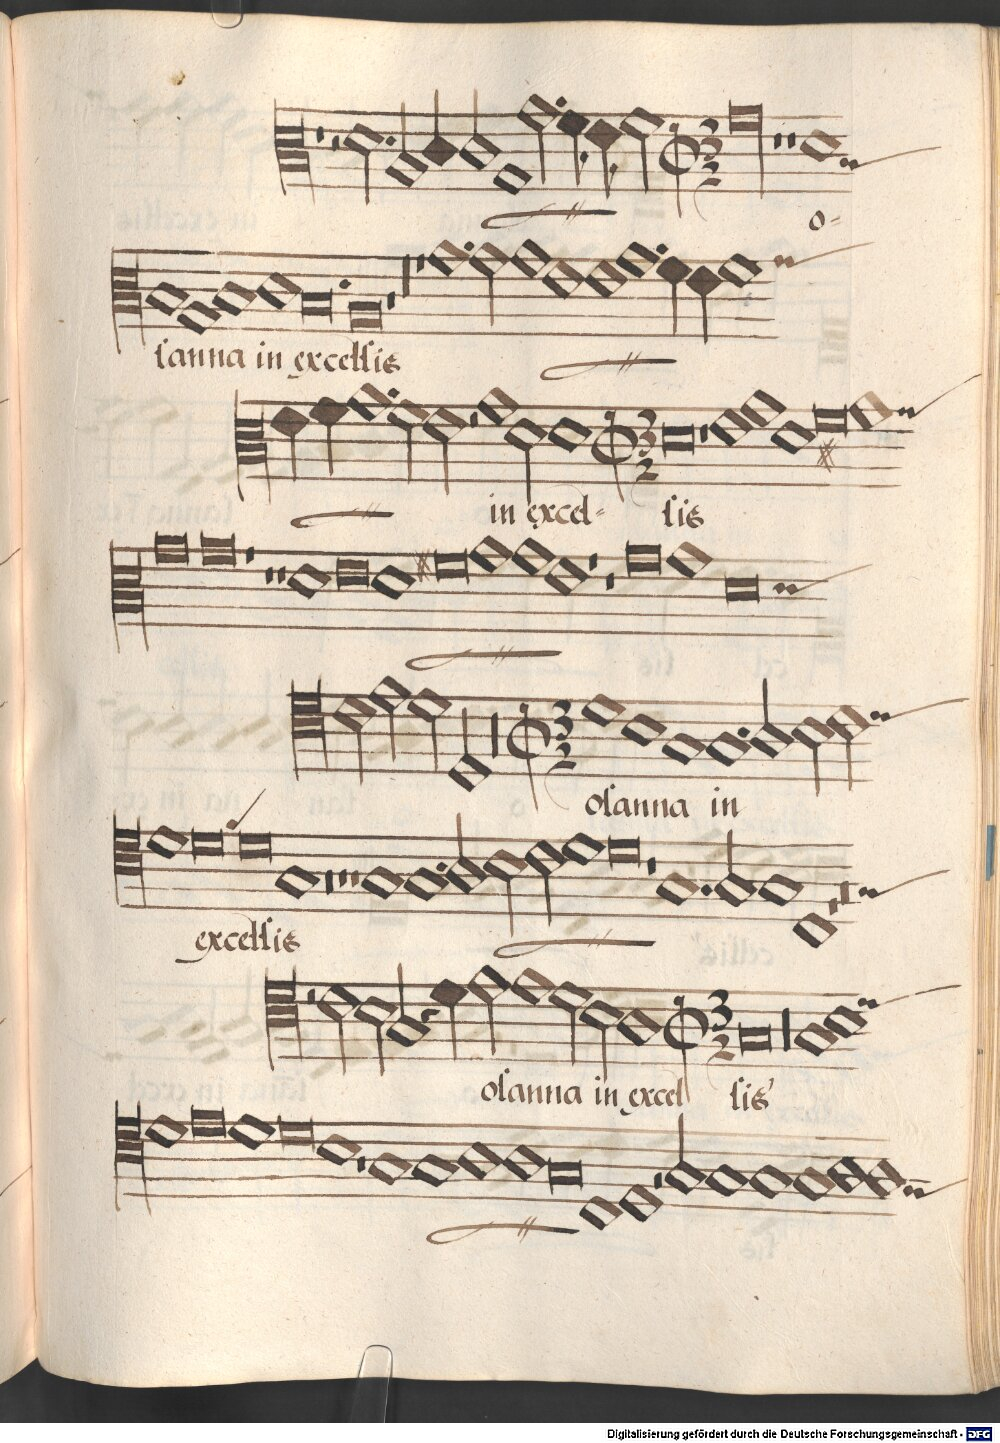 o-
sanna in excelsis
in excel- sis
osanna in
excelsis
osanna in excel sis
Digitalisierung gefördert durch die Deutsche Forschungsgemeinschaft - DFG